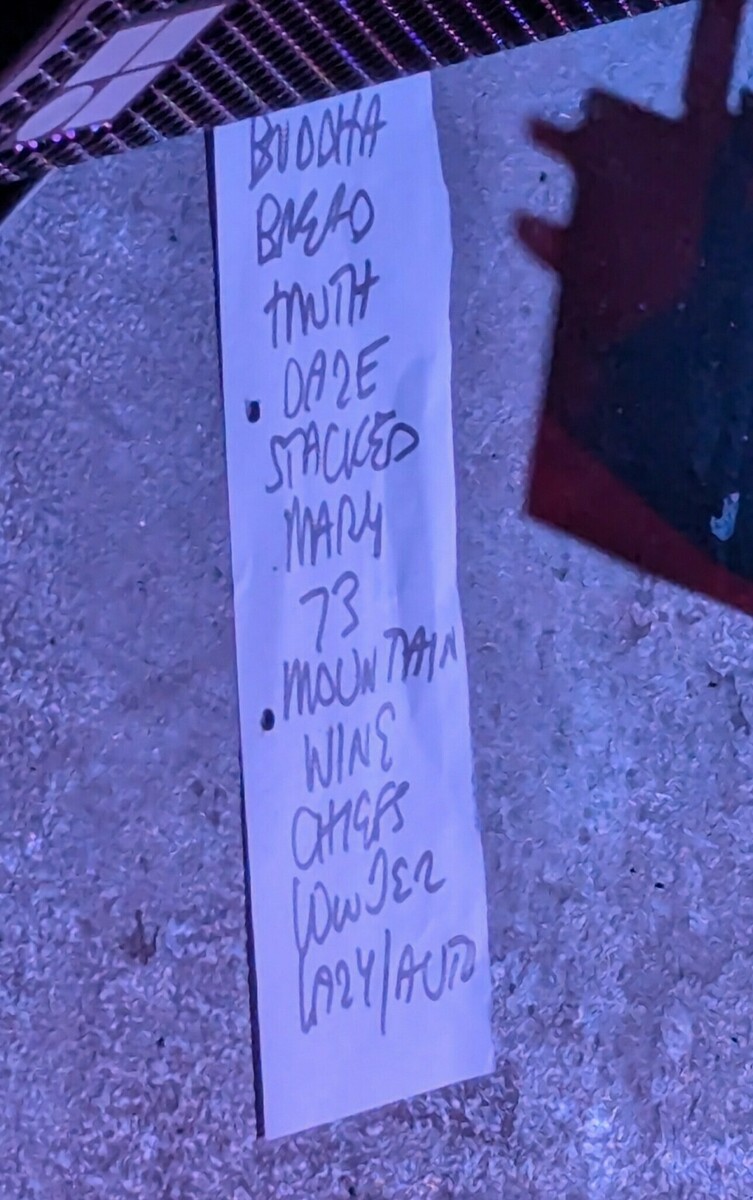 BUDDHA
BREAD
TRUTH
DARE
STACKED
MARY
73
MOUNTAIN
WINE
CHIEFS
POWDER
LAZY/AUTO